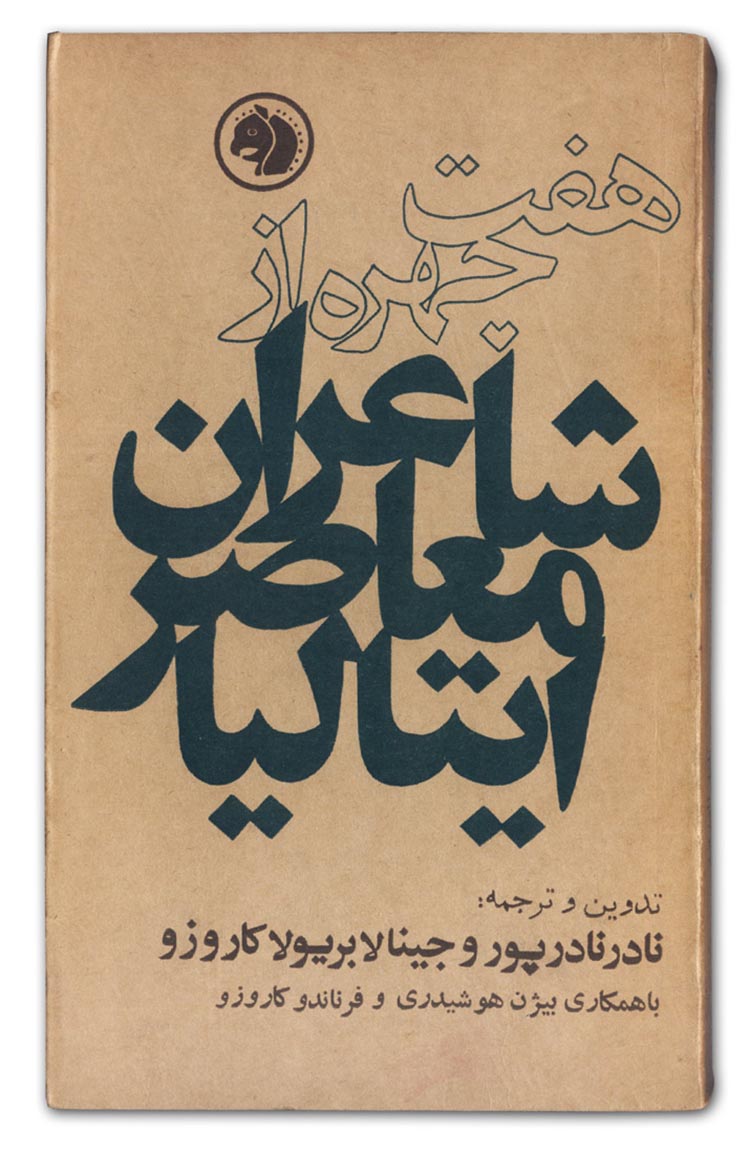 هفت
چهره از
شاعران
معاصر
ایتالیا
تدوین و ترجمه:
نادر نادرپور و جینا لابریولا کاروزو
با همکاری بیژن هوشیدری و فرناندو کاروزو